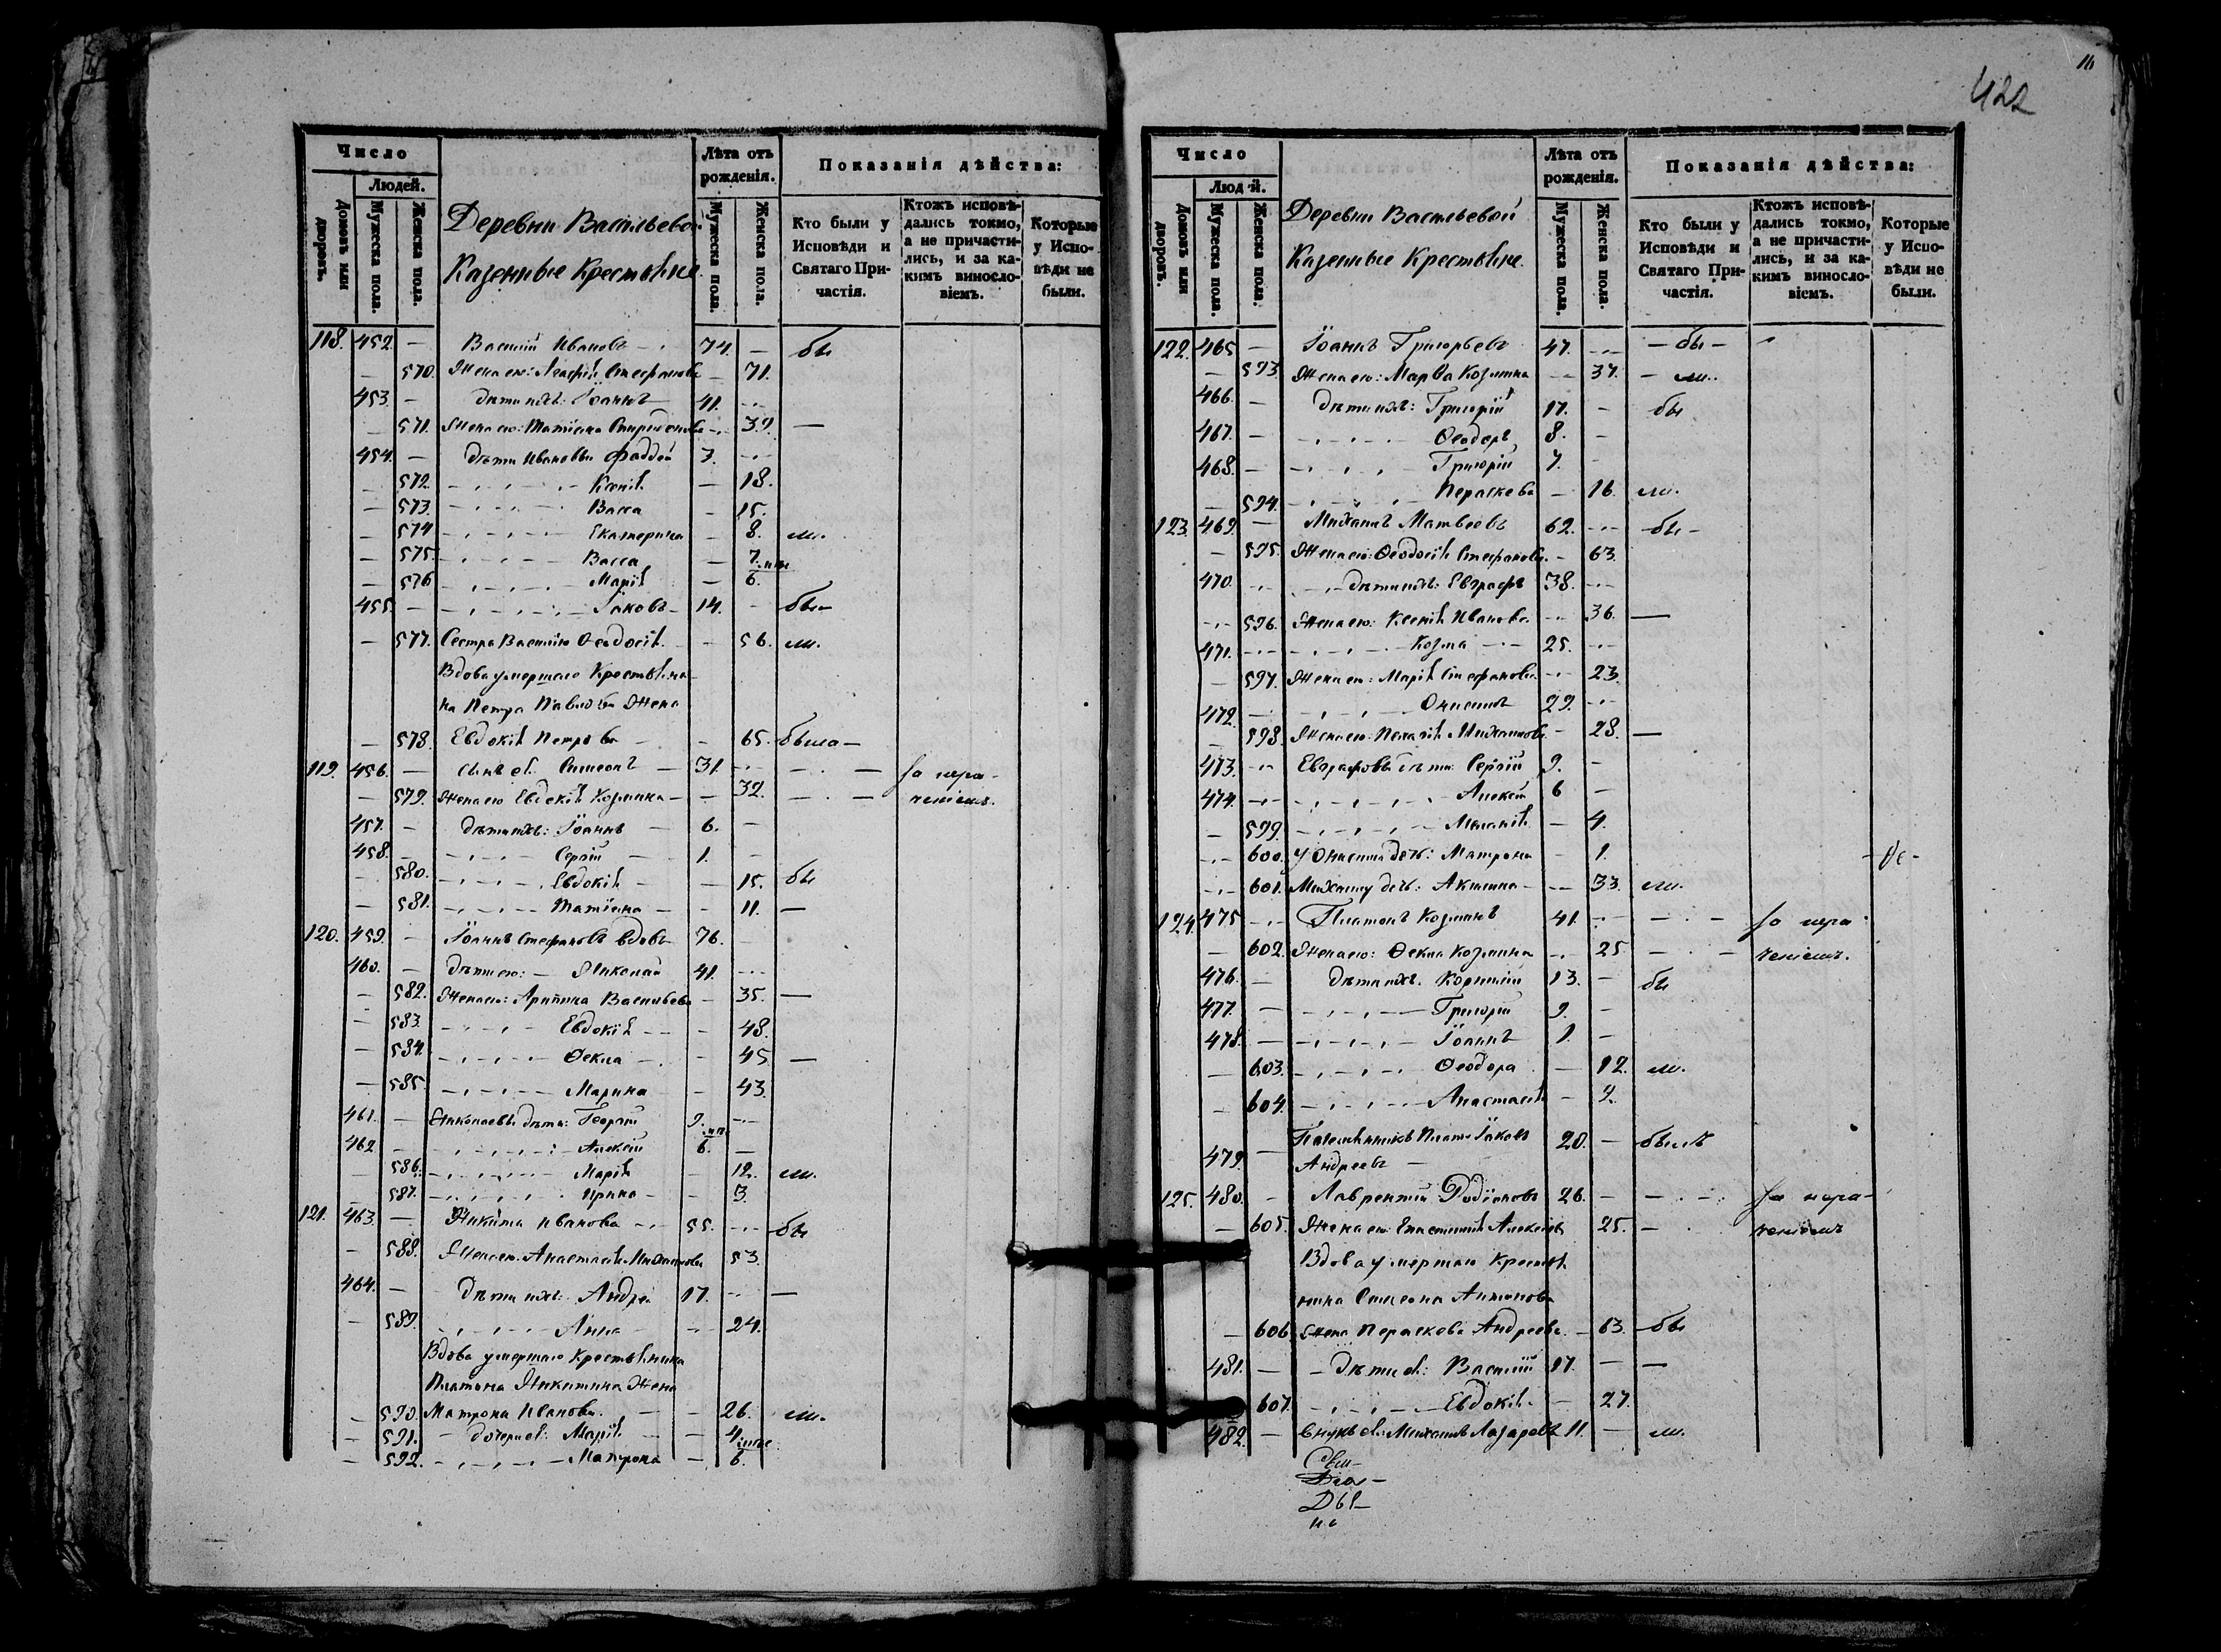 Число
Людей.
Домовъ или дворовъ.
Мужеска пола.
Женска пола.
Деревни Васильевой
Казенные Крестьяне
Лѣта отъ рожденія.
Мужеска пола.
Женска пола.
Показанія дѣйства:
Кто были у Исповѣди и Святаго Причастія.
Ктожъ исповѣдались токмо, а не причастились, и за какимъ винословіемъ.
Которые у Исповѣди не были.
118. 452 — Василій Ивановъ — 74. — бы
— 570. Жена его: Агафія Стефанова — 71.
453. — Дѣти ихъ: Іоаннъ 41.
— 571. Жена его: Татіана Спиридонова — 39. —
454. — Дѣти Ивановы Фаддей 3.
— 572. Ксенія — 18.
— 573. Васса — 15.
— 574 Екатерина — 8. ли.
— 575. Васса — 7.
— 576 Марія — 6.
455. — Іаковъ 14. — бы
— 577. Сестра Василію Ѳеодосія — 56. ли.
Вдова умершаго Крестьяни-
на Петра Павлова Жена
— 578. Евдокія Петрова — 65. была —
119. 456. — сынъ ея Симеонъ — 31. — за нера-
— 579. Жена его Евдокія Козмина — 32. — ченіемъ.
457. — Дѣти ихъ: Іоаннъ — 6. —
458. — Сергій — 1. —
— 580. Евдокія — 15. бы
— 581. Татіана — 11. —
120. 459. — Іоаннъ Стефановъ вдовъ 76.
460. — Дѣти его: — Николай 41.
— 582. Жена его: Арипина Васильева — 35. —
— 583. Евдокія — 48.
— 584. Ѳекла — 45 —
— 585. Марина — 43.
461. — Николаевы дѣти: Георгій 9.
462 — Алексій 6. —
— 586. Марія — 12. ли.
— 587. Ирина — 3.
121. 463. — Никита Иванова 55. бы
— 588. Жена его Анастасія Михайлова 53.
464. — Дѣти ихъ: Андрей 17. —
— 589. Анна — 24.
Вдова умершаго Крестьянина
Платона Никитина Жена
— 590. Матрона Иванова — 26. ли.
— 591. — дочери ея: Марія — 4
— 592. Матрона — 6.
422
Число
Людей.
Домовъ или дворовъ.
Мужеска пола.
Женска пола.
Деревни Васильевой
Казенные Крестьяне.
Лѣта отъ рожденія.
Мужеска пола.
Женска пола.
Показанія дѣйства:
Кто были у Исповѣди и Святаго Причастія.
Ктожъ исповѣдались токмо, а не причастились, и за какимъ винословіемъ.
Которые у Исповѣди не были.
122. 465 — Іоаннъ Григорьевъ 47. — бы —
— 593. Жена его: Марѳа Козмина — 37. — ли.
466. — Дѣти ихъ: Григорій 17. — бы
467. — Ѳеодоръ 8. —
468. — Григорій 7. —
— 594. Параскева — 16. ли.
123. 469. — Михаилъ Матвеевъ 62. бы —
— 595. Жена его: Ѳеодосія Стефанова — 63.
470. Дѣти ихъ: Евграфъ 38.
596. Жена его: Ксенія Иванова 36. —
471. Козма 25.
— 597. Жена ег: Марія Стефанова 23.
472. Онисимъ 29.
— 598. Жена его: Пелагія Михайлова — 28. —
473. Евграфовы дѣти: Сергій 9. —
474. Алексій 6 —
— 599. Меланія — 4.
600. у Онисима дочь: Матрона — 1. — Не —
601. Михаилу дочь: Акилина — 33. ли.
124. 475 Платонъ Козминъ 41. — за нера-
— 602. Жена его: Ѳекла Козмина 25. — ченіемъ.
476. — Дѣти ихъ. Корнилій 13. — бы
477. — Григорій 9. —
478. — Іоаннъ 1. —
— 603. Ѳеодора — 12. ли.
— 604. Анастасія —
479. — Іаковъ 20. — былъ
Андреевъ —
125. 480. — Лаврентій Родіоновъ 26. — за нера-
— 605. Жена ег: 25. — ченіемъ
Вдова умершаго Крестья-
нина Симеона Антонова
— 606. Жена Параскева Андреева — 63. бы
481. — Дѣти ея: Василій 17. — —
— 607. Евдокія — 27.
482. — Внукъ ея: Михаилъ Лазаревъ 11. — ли.